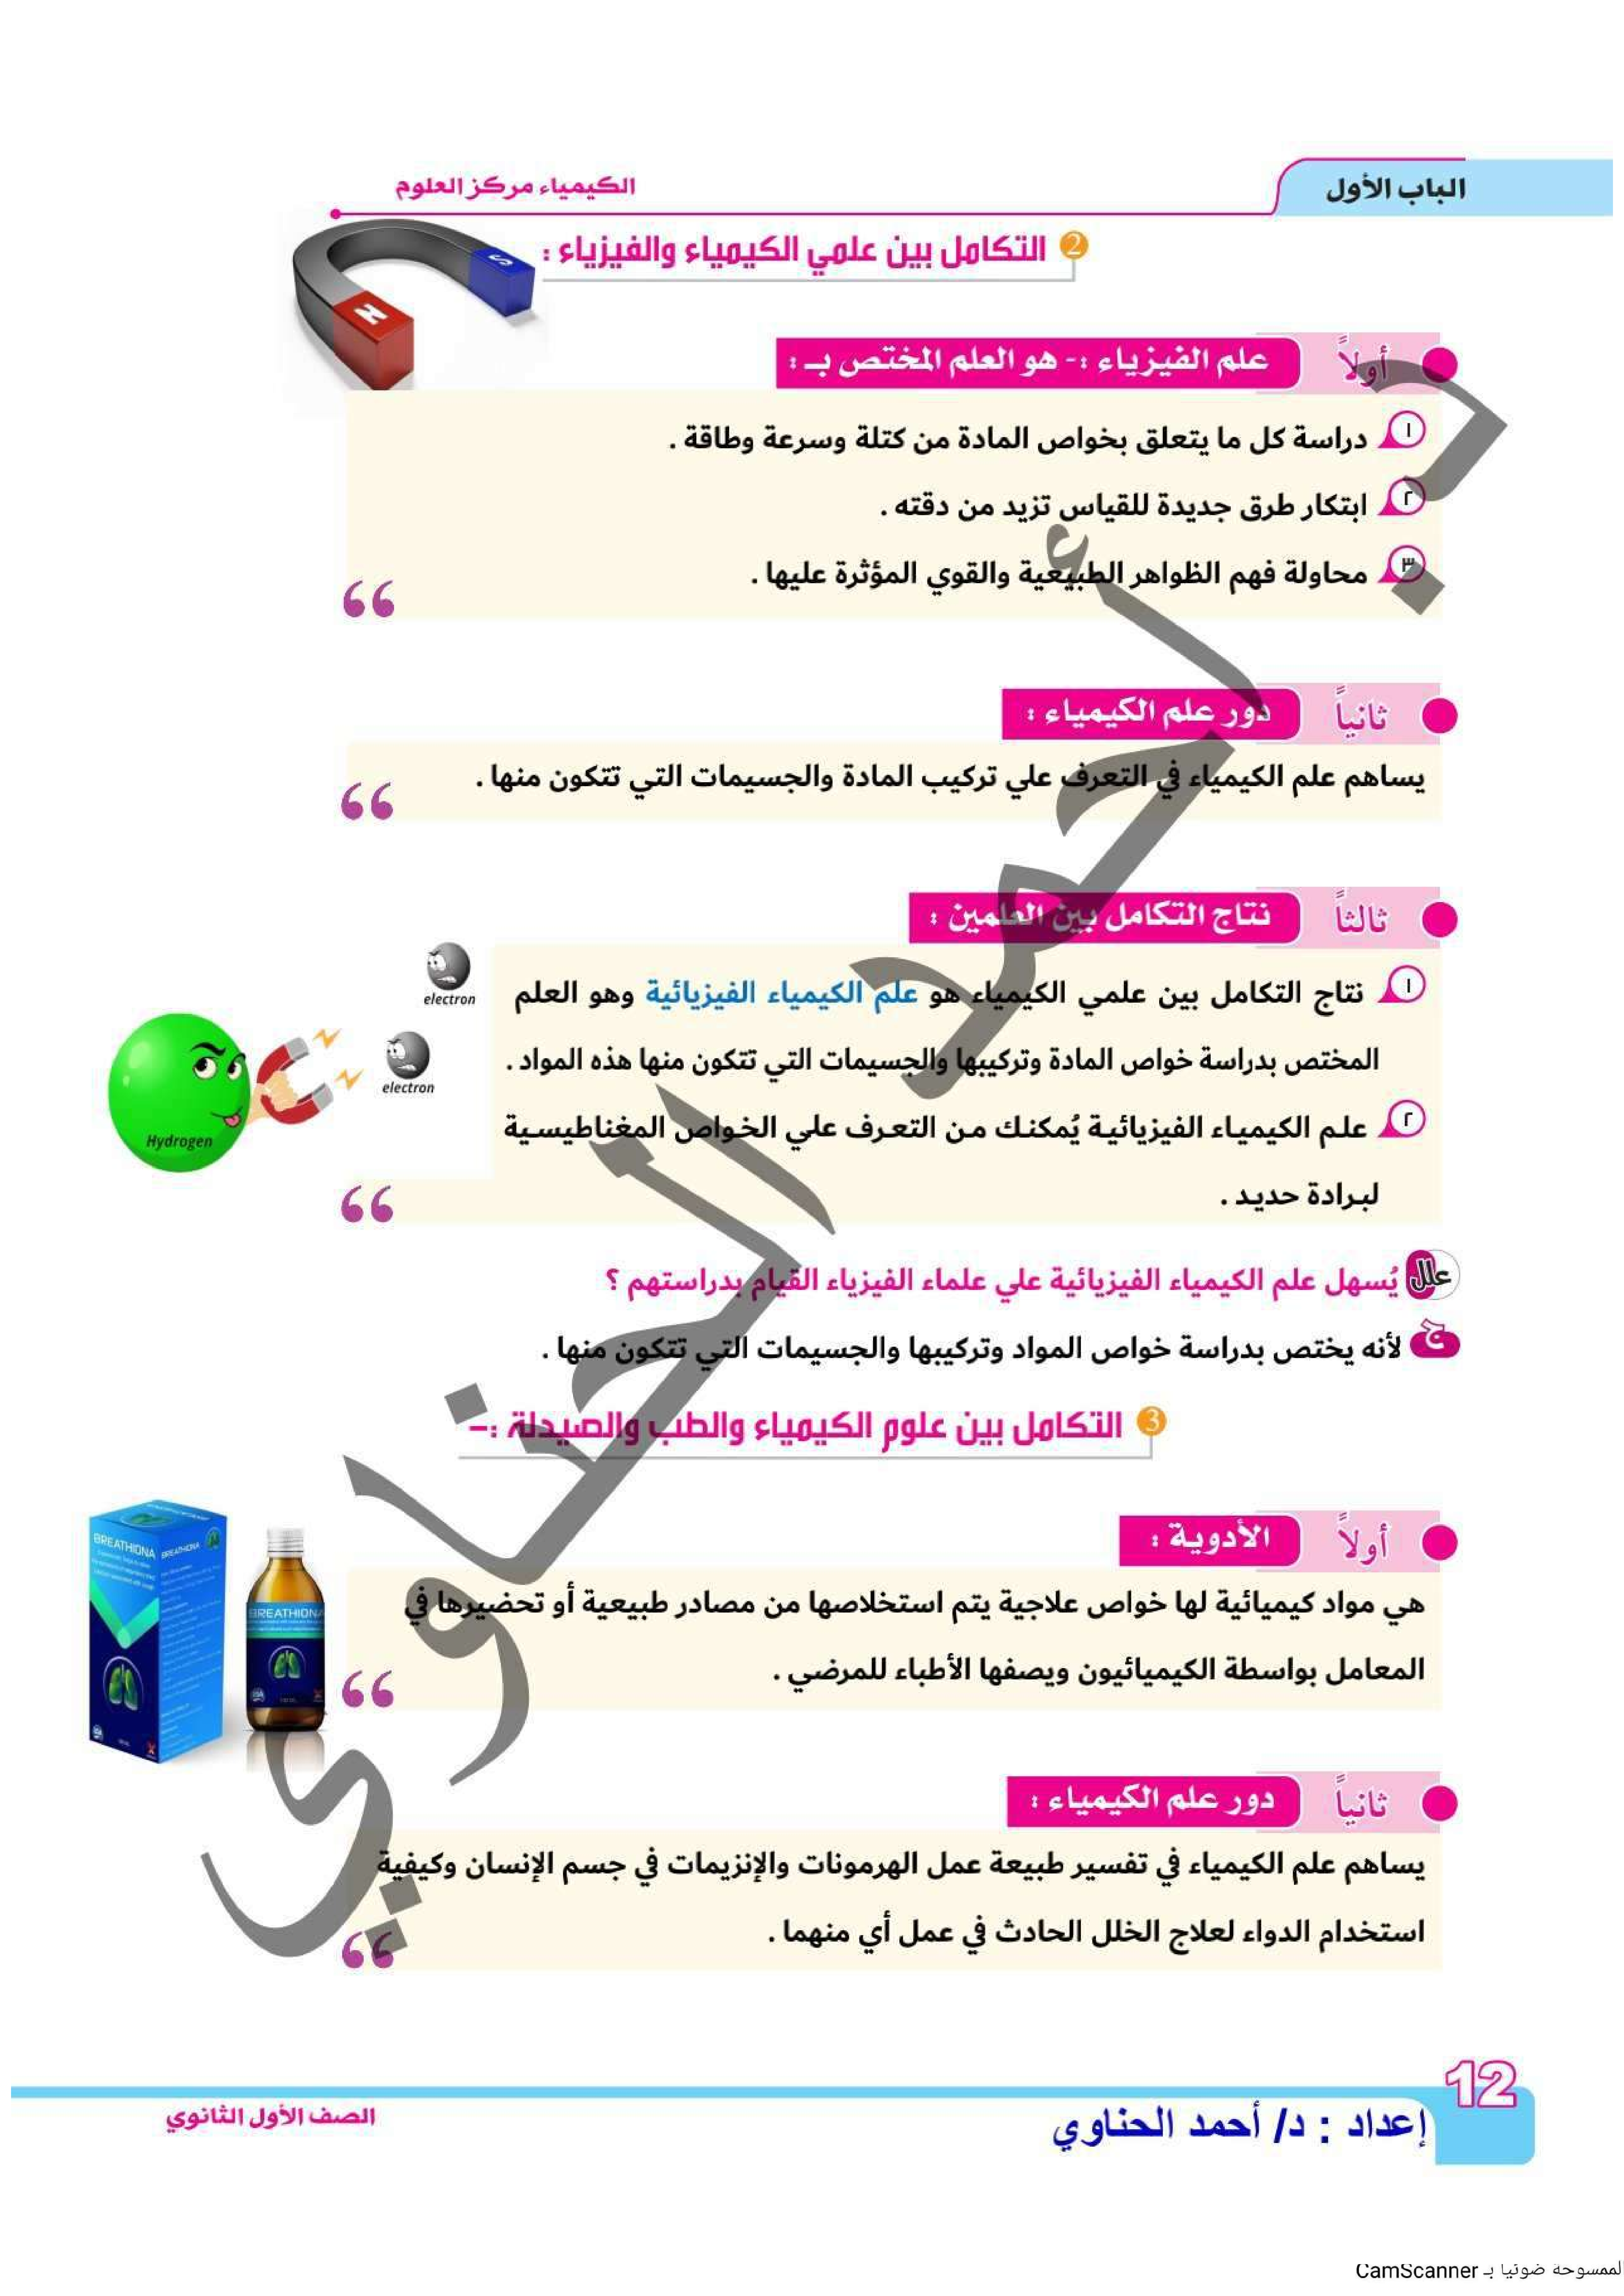 الباب الأول
الكيمياء مركز العلوم
2 التكامل بين علمي الكيمياء والفيزياء :
أولاً
علم الفيزياء :- هو العلم المختص بـ :
١ دراسة كل ما يتعلق بخواص المادة من كتلة وسرعة وطاقة .
٢ ابتكار طرق جديدة للقياس تزيد من دقته .
٣ محاولة فهم الظواهر الطبيعية والقوي المؤثرة عليها .
ثانياً
دور علم الكيمياء :
يساهم علم الكيمياء في التعرف علي تركيب المادة والجسيمات التي تتكون منها .
ثالثاً
نتاج التكامل بين العلمين :
١ نتاج التكامل بين علمي الكيمياء هو علم الكيمياء الفيزيائية وهو العلم
المختص بدراسة خواص المادة وتركيبها والجسيمات التي تتكون منها هذه المواد .
٢ علم الكيمياء الفيزيائية يُمكنك من التعرف علي الخواص المغناطيسية
لبرادة حديد .
electron
electron
Hydrogen
علل يُسهل علم الكيمياء الفيزيائية علي علماء الفيزياء القيام بدراستهم ؟
ج لأنه يختص بدراسة خواص المواد وتركيبها والجسيمات التي تتكون منها .
3 التكامل بين علوم الكيمياء والطب والصيدلة :-
أولاً
الأدوية :
هي مواد كيميائية لها خواص علاجية يتم استخلاصها من مصادر طبيعية أو تحضيرها في
المعامل بواسطة الكيميائيون ويصفها الأطباء للمرضي .
BREATHIONA
BREATHIONA
BREATHIONA
ثانياً
دور علم الكيمياء :
يساهم علم الكيمياء في تفسير طبيعة عمل الهرمونات والإنزيمات في جسم الإنسان وكيفية
استخدام الدواء لعلاج الخلل الحادث في عمل أي منهما .
د. أحمد الحناوي
12
إعداد : د/ أحمد الحناوي
الصف الأول الثانوي
لممسوحة ضوئيا بـ CamScanner